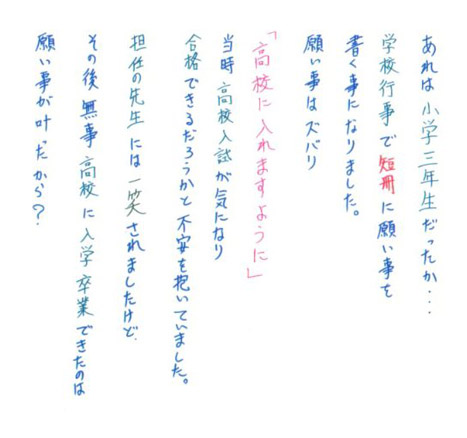 あれは小学三年生だったか・・・
学校行事で短冊に願い事を
書く事になりました。
願い事はズバリ
「高校に入れますように」
当時高校入試が気になり
合格できるだろうかと不安を抱いていました。
担任の先生には一笑されましたけど
その後無事高校に入学卒業できたのは
願い事が叶だから？